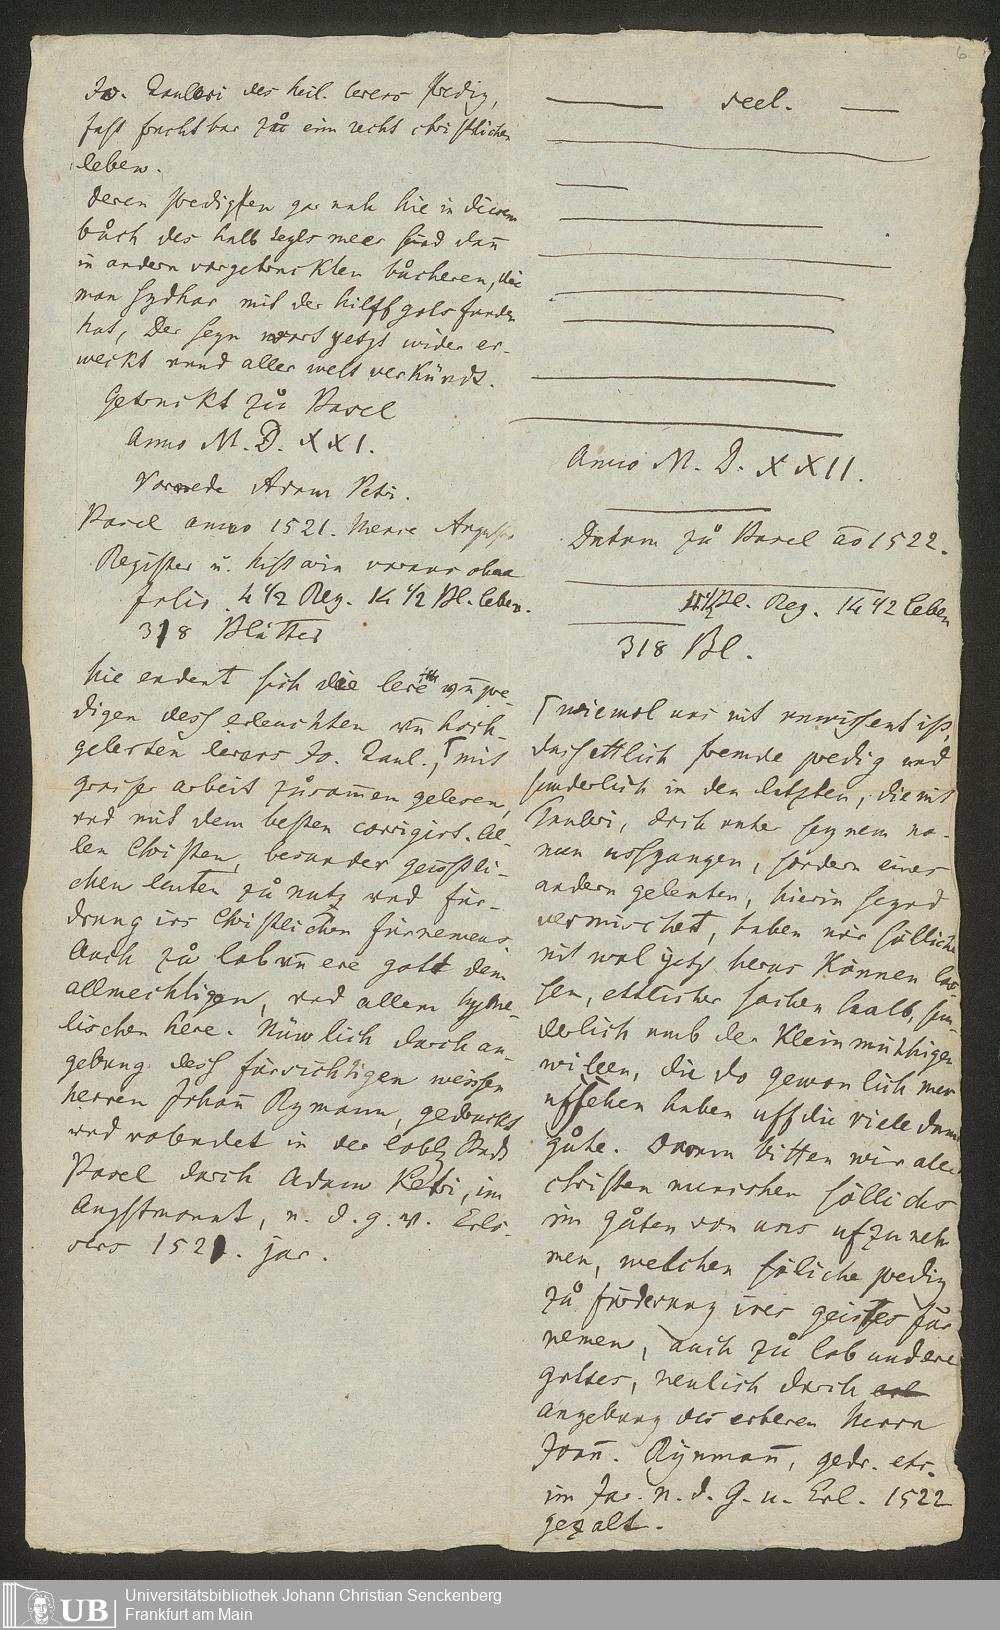 6
Jo. Tauleri des heil. lerers predig,
fast fruchtbar zů eim recht christlichen
leben.
Deren predigten gar nah hie in diesem
bůch des halb teyls meer sind dan̄
in andern vorgetruckten bůcheren, die
man sydhar mit der hilff gots funden
hat, Der seyn wort yetzt wider er-
weckt unnd aller welt verkündt.
Getruckt zů Basel
Anno M. D. XXI.
Vorrede Adam Petri.
Basel anno 1521. Mense Augusto
Register u. histori voraus ohne
folio. 4 1/2 Reg. 14 1/2 Bl. leben.
318 Blätter
hie endent sich die lere un̄ pre-
digen dess erleuchten un̄ hoch-
gelerten lerers Jo. Taul., ⌈mit
grosser arbeit zůsam̄en gelesen,
und mit dem besten corrigirt. Al-
len Christen, besunder geistli-
chen leuten zů nutz und für-
drung irs Christlichen fürnemens.
Auch zů lob un̄ ere gott dem
allmechtigen, und allem hyme-
lischen here. Nüwlich durch an-
gebung dess fürsichtigen weisen
herren Johan̄ Rymann, gedruckt
und volendet in der lobl. Stadt
Basel durch Adam Petri, im
Augstmonat, n. d. g. u. Erlö-
sers 1521. jar.
seel.
Anno M. D. XXII.
Datum zů Basel ao 1522.
Bl. Reg. 14 1/2 leben
318 Bl.
⌈wiemol uns nit unwissent ist,
das ettlich fremde predig und
sunderlich in den letzten, die nit
Tauleri, doch unter seynem na-
men ussgangen, sondern eines
andern gelerten, hierin seynd
vermischet, haben wir sölliche
nit wol yetz herus können las-
sen, ettlicher sachen halb, sun-
derlich umb der Kleinmüthigen
willen, die do gewonlich mer
uffsehen haben uff die viele dann
güte. Darum bitten wir alle
christen menschen söllichs
im gůten von uns ufzuneh
men, welchen söliche predig
zů fürderung ires geistes für
nemen, auch zů lob und ere
gottes, neulich durch
angebung des erberen herrn
Joan̄. Rynman̄, gedr. etc.
im Jar. n. d. G. u. Erl. 1522
gezalt.
UB
Universitätsbibliothek Johann Christian Senckenberg
Frankfurt am Main